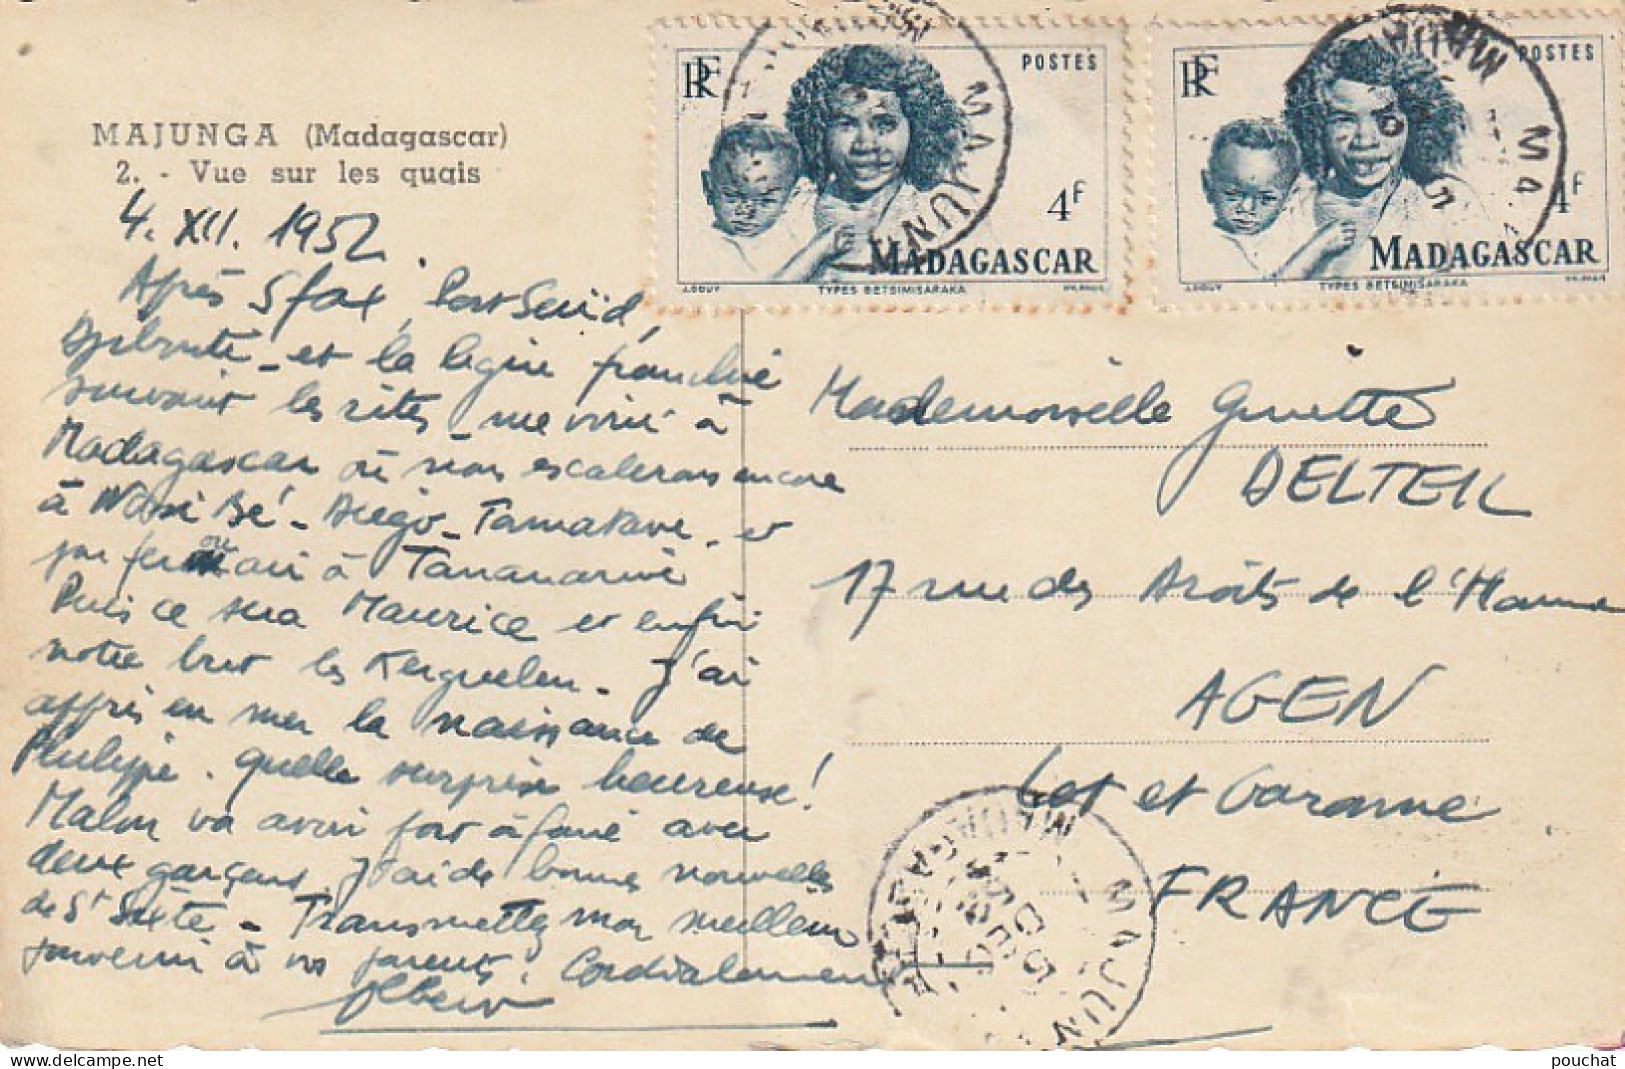 MAJUNGA (Madagascar)
2. - Vue sur les quais
4. XII. 1952.
Après Sfax, Port Saïd,
Djibouti - et la ligne franchie
suivant les rites - me voici à
Madagascar où nous escalerons encore
à Nosi Bé - Diégo - Tamatave - et
par fer ou air à Tananarive
Puis ce sera Maurice et enfin
notre but les Kerguelen - J'ai
appris en mer la naissance de
Philippe. quelle surprise heureuse !
Malou va avoir fort à faire avec
deux garçons. J'ai de bonnes nouvelles
de St Sixte - Transmettez mon meilleur
souvenir à vos parents. Cordialement
Albert
RF
POSTES
4F
MADAGASCAR
TYPES BETSIMISARAKA
RF
POSTES
4F
MADAGASCAR
TYPES BETSIMISARAKA
MAJUNGA
MAJUNGA
Mademoiselle Ginette
DELTEIL
17 rue des Droits de l'Homme
AGEN
Lot et Garonne
FRANCE
MAJUNGA
www.delcampe.net
pouchat